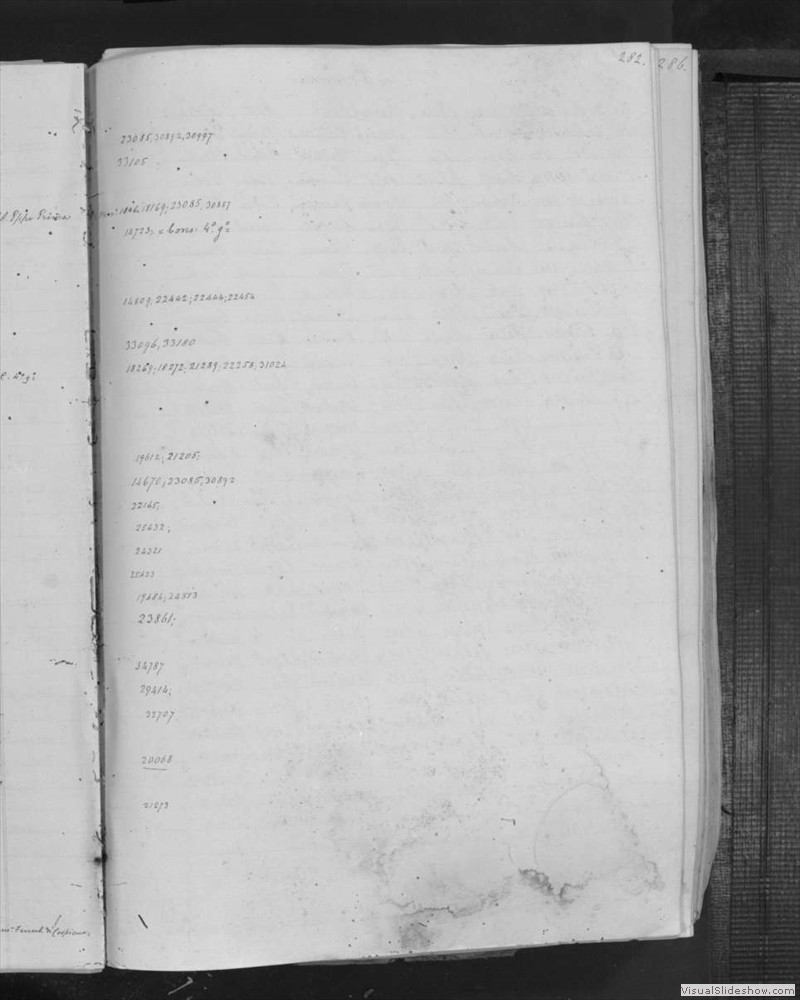 282. 286.
23085, 30892, 30997
33105
18169; 23085, 30887
18723;
14809; 22442; 22444; 22454
33096, 33100
18269; 18272; 21289; 22258; 31024
19612; 21205;
14670; 23085, 30892
22165;
25632;
24321
25633
19686; 24513
23861;
34787
29414;
32707
20068
21273
VisualSlideshow.com